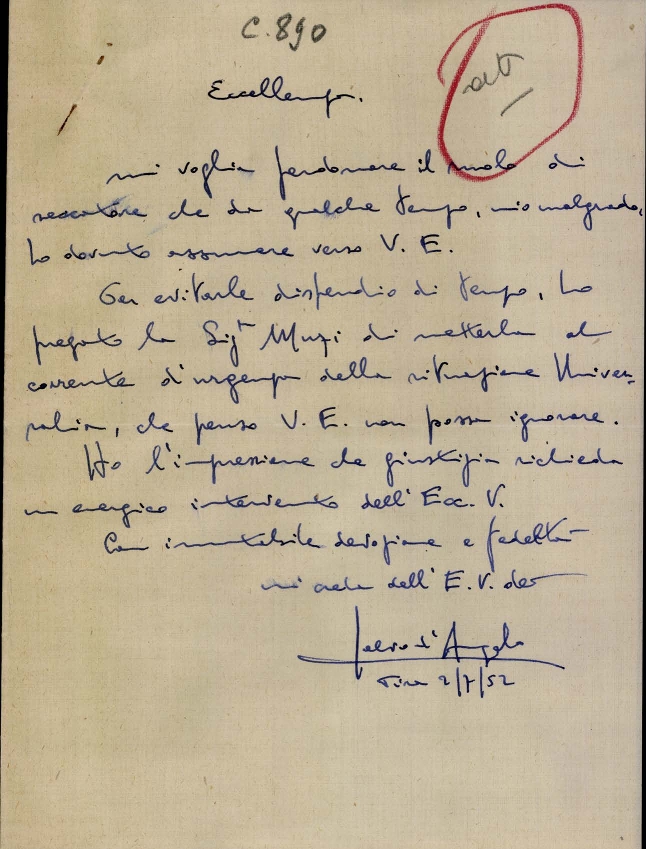 C. 890
att
Eccellenza.
mi voglia perdonare il ruolo di
seccatore che da qualche tempo, mio malgrado,
ho dovuto assumere verso V. E.
Per evitarle dispendio di tempo, ho
pregato la Sigra Muzi di metterla al
corrente d'urgenza della situazione Univer-
salia, che penso V. E. non possa ignorare.
Ho l'impressione che giustizia richieda
un energico intervento dell'Ecc. V.
Con immutabile devozione e fedeltà
mi creda dell'E. V. dev
Salvo d'Angelo
2/7/52